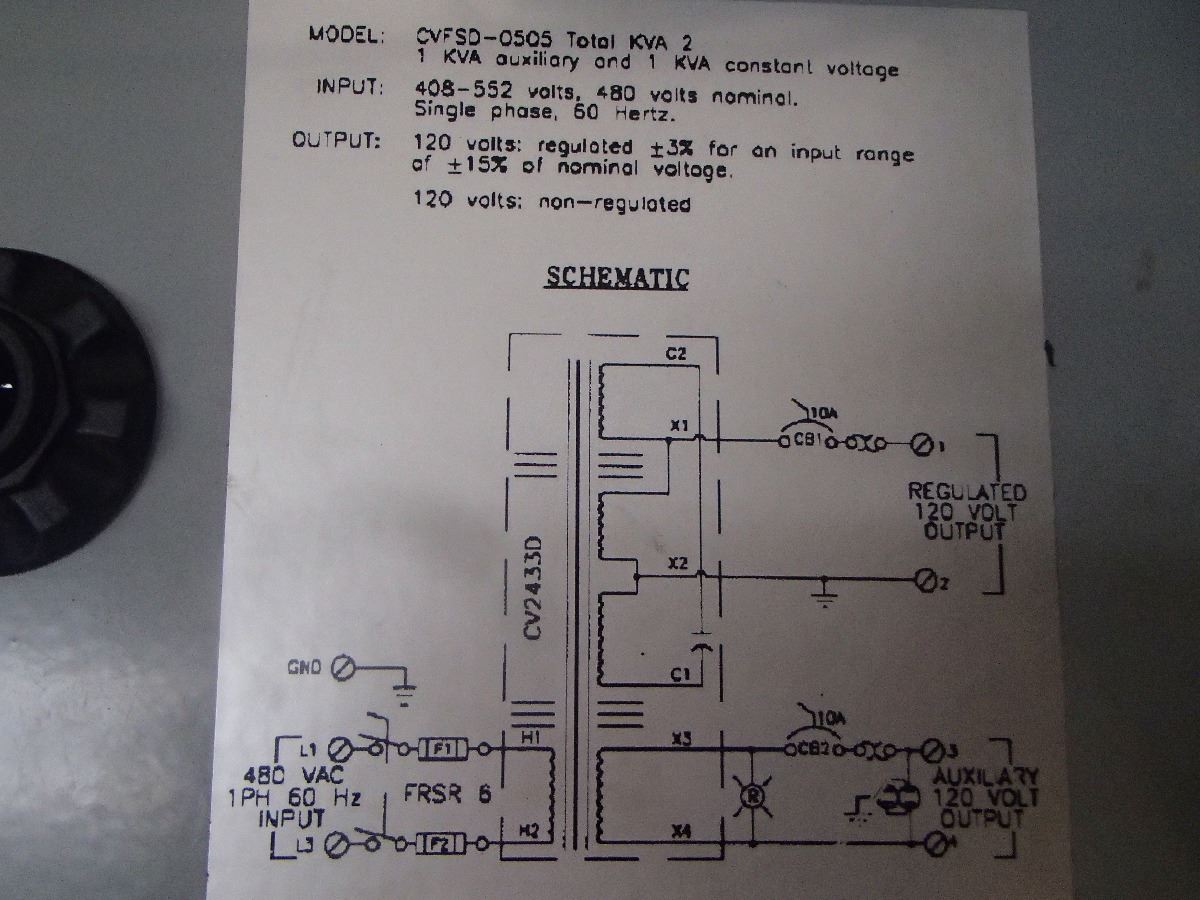 MODEL: CVFSD-0505 Total KVA 2
1 KVA auxiliary and 1 KVA constant voltage
INPUT: 408-552 volts, 480 volts nominal.
Single phase, 60 Hertz.
OUTPUT: 120 volts: regulated ±3% for an input range
of ±15% of nominal voltage.
120 volts: non-regulated
SCHEMATIC
C2
X1
10A
CB1
1
REGULATED
120 VOLT
OUTPUT
CV2433D
X2
2
C1
GND
L1
F1
H1
X3
10A
CB2
3
480 VAC
1PH 60 Hz
INPUT
FRSR 6
R
AUXILARY
120 VOLT
OUTPUT
L3
F2
H2
X4
4